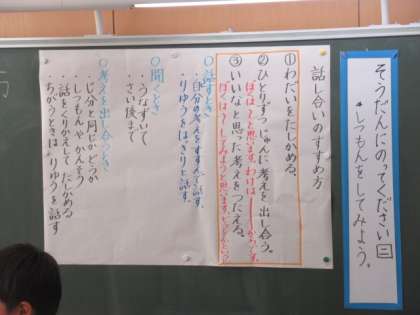 そうだんにのってください 二
しつもんをしてみよう。
話し合いのすすめ方
① わだいをたしかめる。
② ひとりずつじゅんに考えを出し合う。
ぼくは～と思います。わけは
③ いいなと思った考えをつたえる。
ぼくは～してみようと思います。
○話すとき
・自分の考えをすすんで話す。
・りゆうをはっきりと話す。
○聞くとき
・うなずいて
・さい後まで
○考えを出し合うとき
・じ分と同じかどうか
・しつもんやかんそう
・話をくりかえしてたしかめる
・ちがうときは りゆうを話す